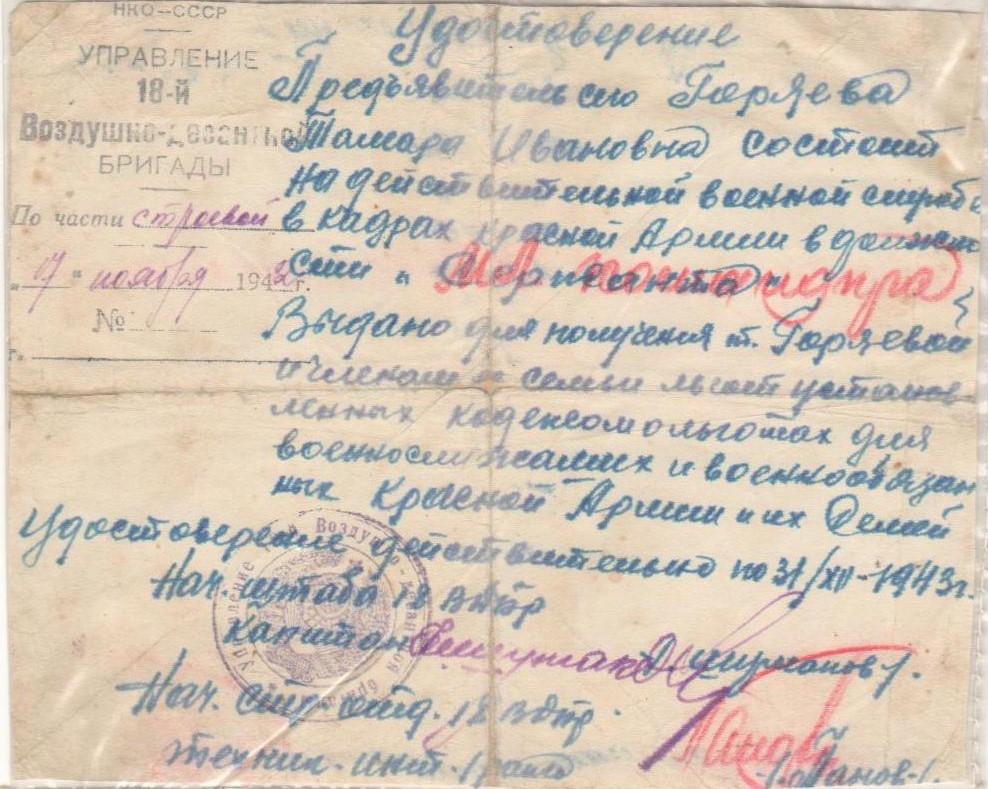 НКО-СССР
УПРАВЛЕНИЕ
18-й
Воздушно-десантной
БРИГАДЫ
По части строевой
"17" ноября 1942 г.
№
г.
Удостоверение
Предъявительсно Горяева
Тамара Ивановна состоит
на действительной военной службе
в кадрах Красной Армии в должно
сти "
Сержанта"
Выдано для получения т. Горяевой
и членам ее семьи льгот установ-
ленных кодексом о льготах для
военнослужащих и военнообязан
ных Красной Армии и их семей
Удостоверение действительно по 31/XII-1943г.
Нач. штаба 18 вдбр
капитан
Нач. стр. отд. 18 вдбр.
техник-инт. 1 ранга
Панов
/Панов/.
Управление Воздушно-десантной бригады